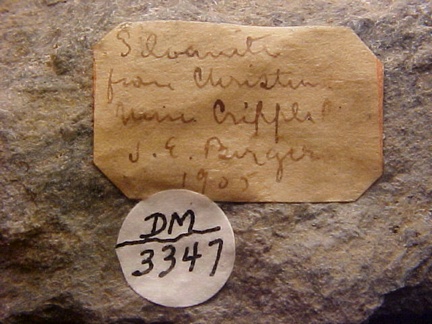 Silvanite
from Christin
Mine Cripple
J. E. Burger
190
DM
3347